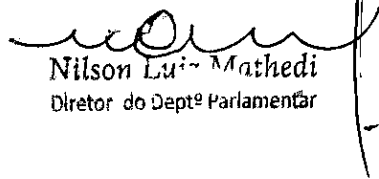 Nilson Luiz Mathedi
Diretor do Deptº Parlamentar